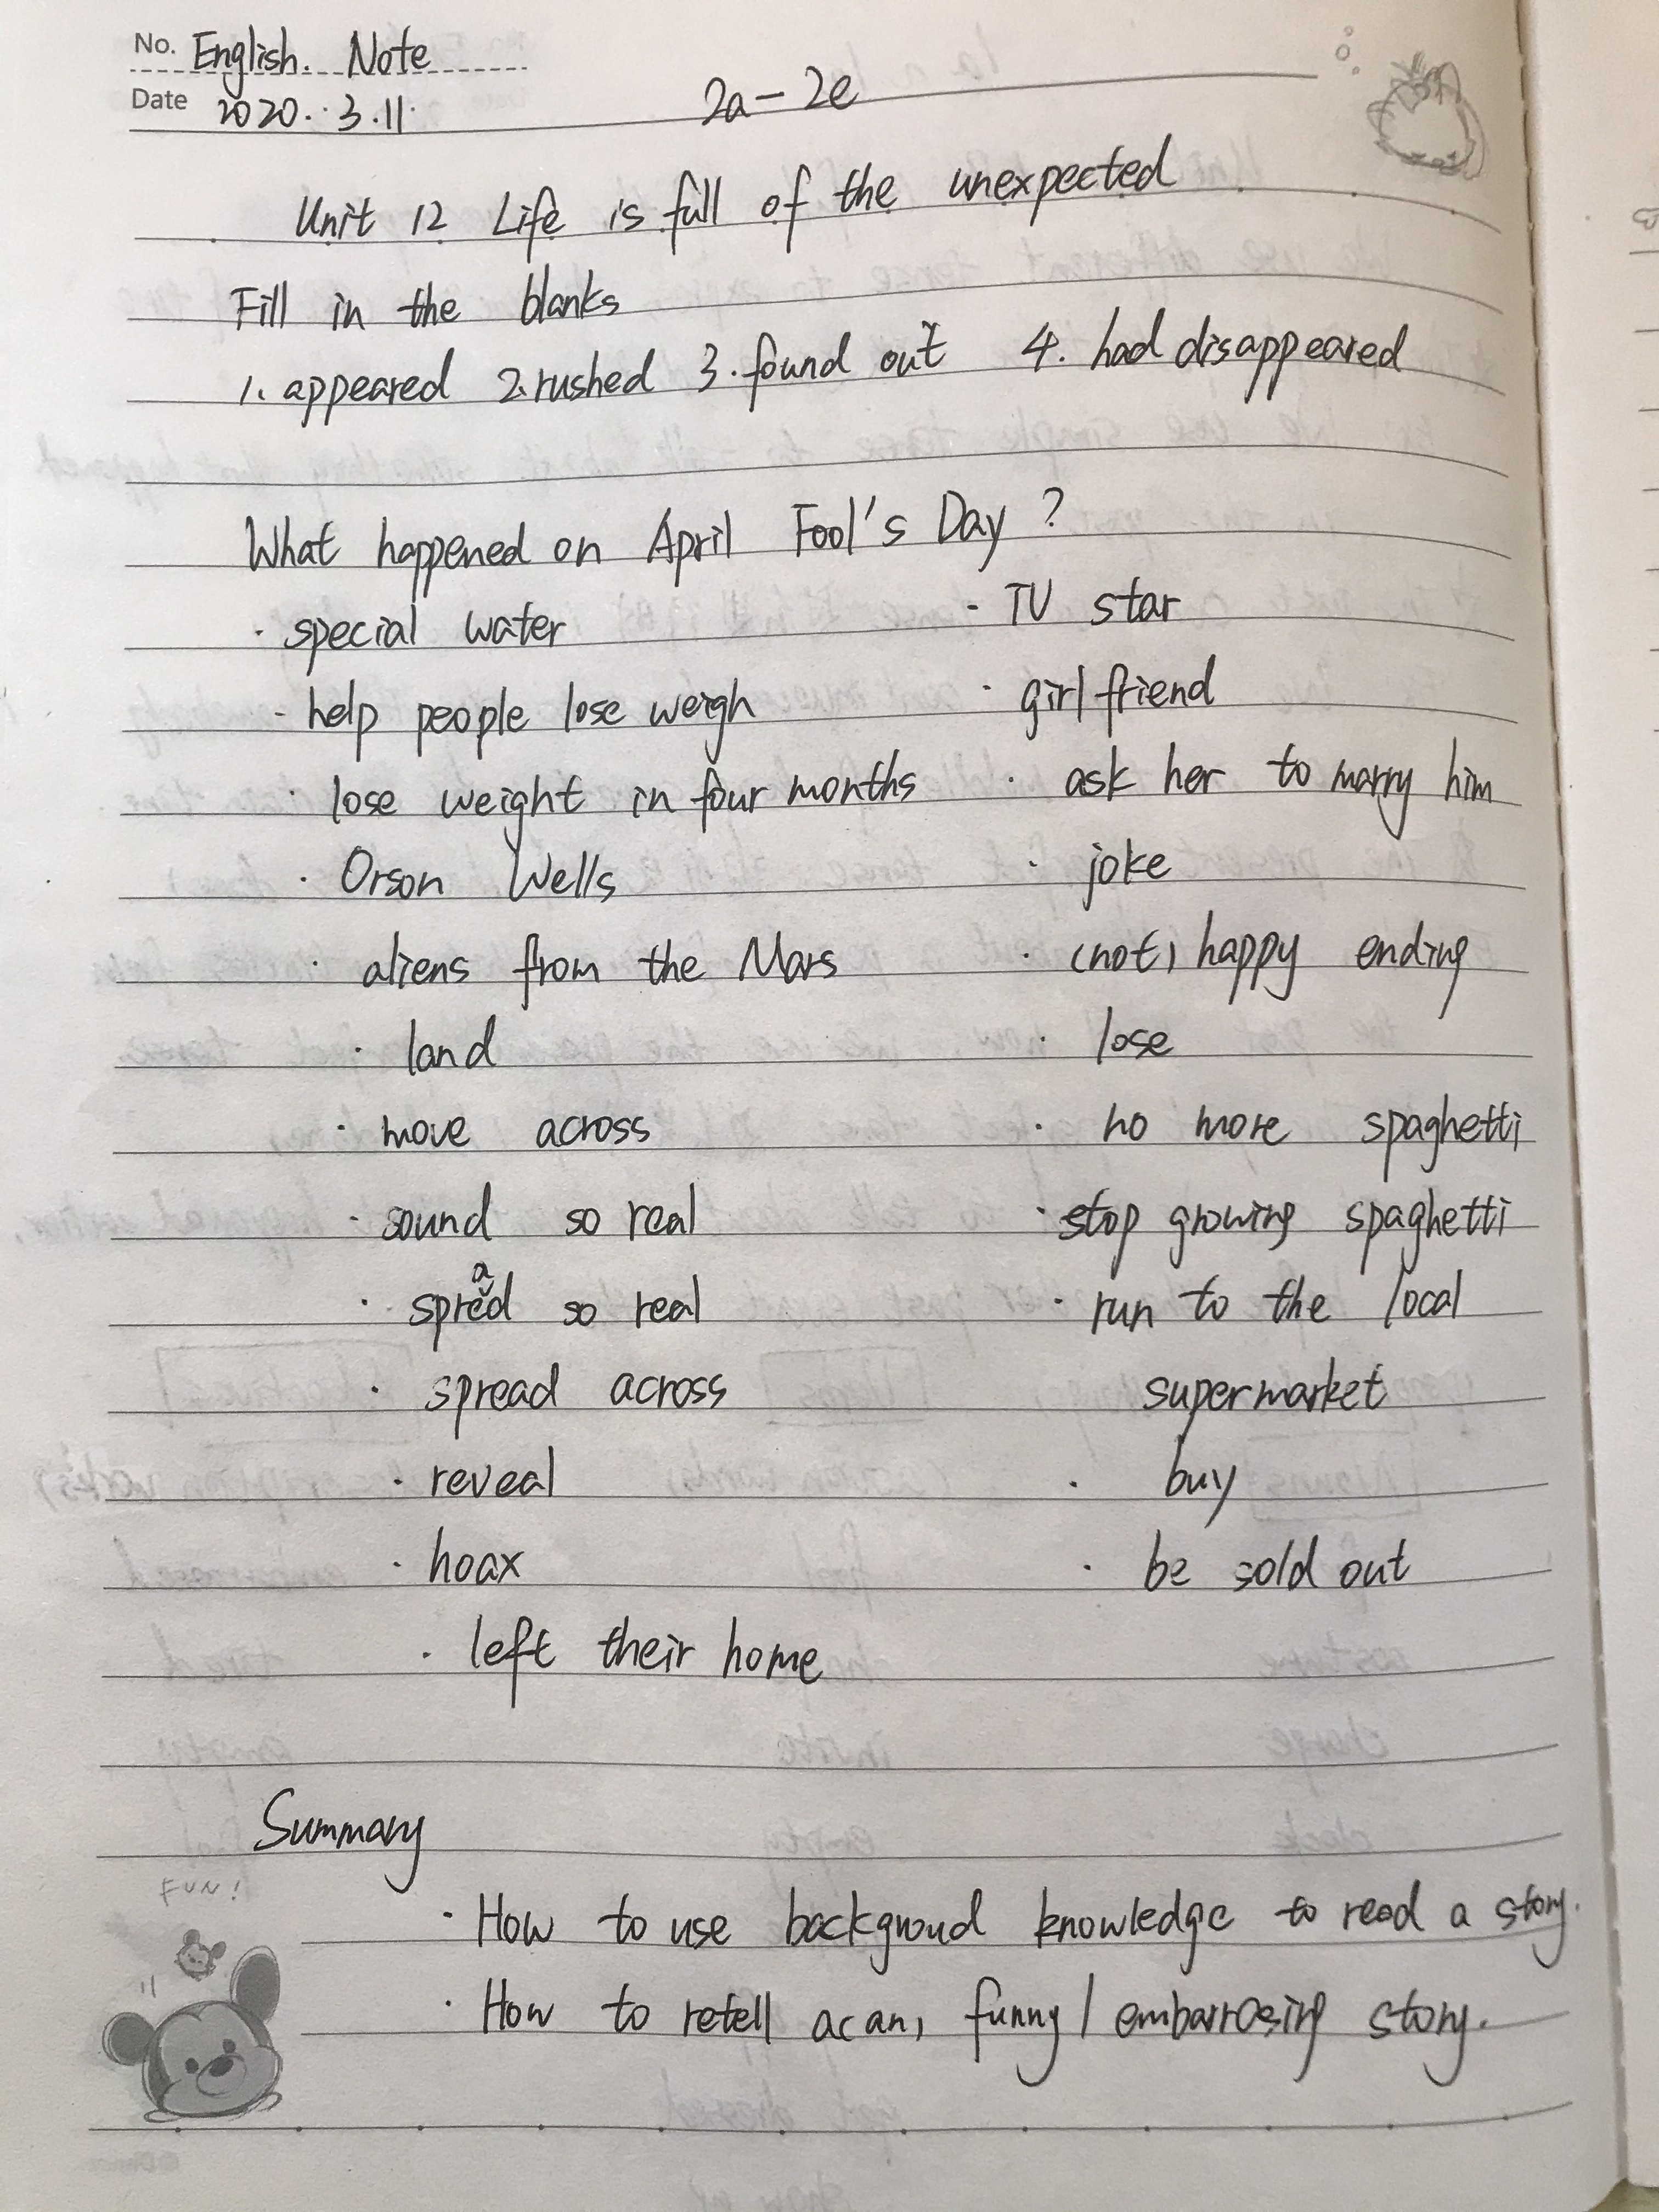 No. English. Note
Date 2020. 3.11.
2a-2e
Unit 12 Life is full of the unexpected
Fill in the blanks
1. appeared 2. rushed 3. found out 4. had disappeared
What happened on April Fool's Day?
· special water
· help people lose weigh
· lose weight in four months
· Orson Wells
· aliens from the Mars
· land
· move across
· sound so real
· spread so real
· spread across
· reveal
· hoax
· left their home
· TV star
· girlfriend
· ask her to marry him
· joke
· (not) happy ending
· lose
· no more spaghetti
· stop growing spaghetti
· run to the local
supermarket
· buy
· be sold out
Summary
· How to use backgroud knowledge to read a story.
· How to retell a(an) funny/embarrosing story.
FUN!